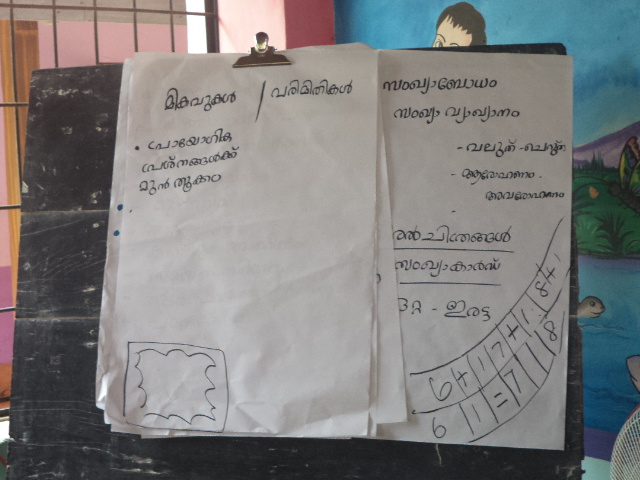 മികവുകൾ / പരിമിതികൾ
• പ്രായോഗിക
പ്രശ്നങ്ങൾക്ക്
മുൻതൂക്കം
സംഖ്യാബോധം
സംഖ്യാ വ്യാഖ്യാനം
- വലുത് - ചെറുത്
- ആരോഹണം
അവരോഹണം
-
ചിത്രങ്ങൾ
സംഖ്യാകാർഡ്
ഒറ്റ - ഇരട്ട
6 + 1 7 + 1
6 1 = 7 1 8